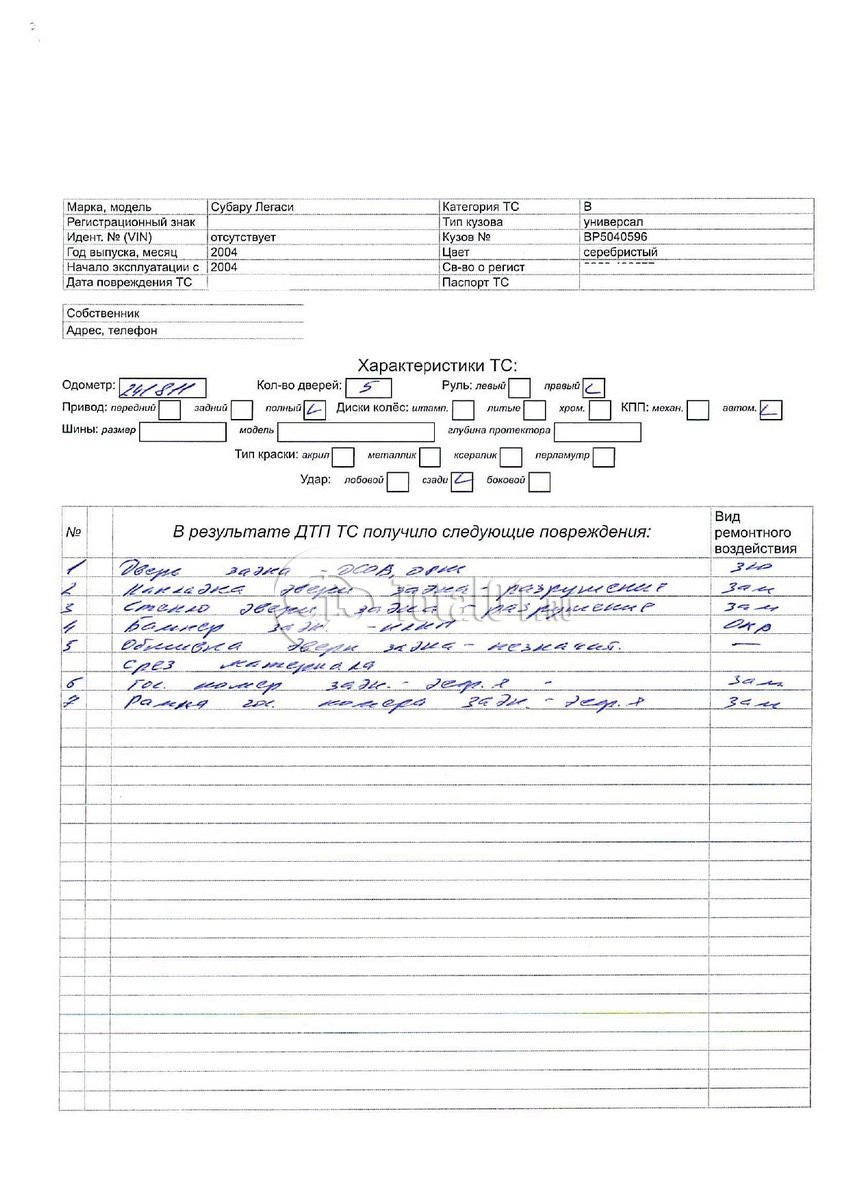 Марка, модель Субару Легаси Категория ТС B
Регистрационный знак Тип кузова универсал
Идент. № (VIN) отсутствует Кузов № BP5040596
Год выпуска, месяц 2004 Цвет серебристый
Начало эксплуатации с 2004 Св-во о регист
Дата повреждения ТС Паспорт ТС
Собственник
Адрес, телефон
Характеристики ТС:
Одометр: 241811 Кол-во дверей: 5 Руль: левый правый
Привод: передний задний полный Диски колёс: штамп. литые хром. КПП: механ. автом.
Шины: размер модель глубина протектора
Тип краски: акрил металлик ксералик перламутр
Удар: лобовой сзади боковой
№ В результате ДТП ТС получило следующие повреждения: Вид ремонтного воздействия
1 Дверь задка -
2 Накладка двери задка - разрушение зам
3 Стекло двери задка - разрушение зам
4 Бампер задн. - окр
5 Обшивка двери задка - незначит. —
срез материала
6 Гос. номер задн. - деф.я - зам
7 Рамка гос. номера задн. - деф.я зам